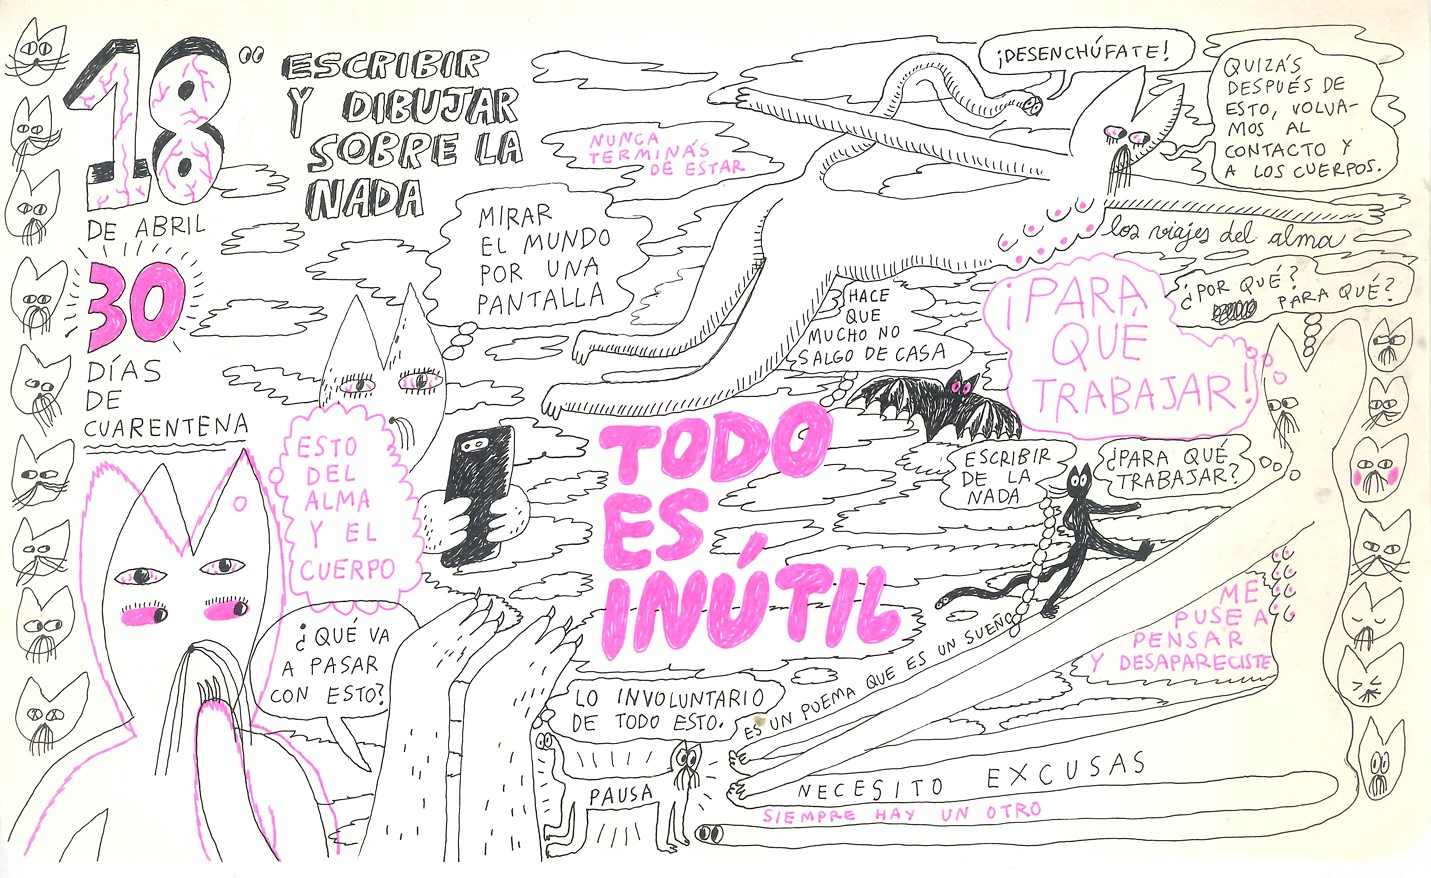 18
DE ABRIL
30
DÍAS
DE
CUARENTENA
ESCRIBIR
Y DIBUJAR
SOBRE LA
NADA
NUNCA
TERMINÁS
DE ESTAR
¡DESENCHÚFATE!
QUIZÁS
DESPUÉS DE
ESTO, VOLVA-
MOS AL
CONTACTO Y
A LOS CUERPOS.
los viajes del alma
MIRAR
EL MUNDO
POR UNA
PANTALLA
HACE
QUE
MUCHO NO
SALGO DE CASA
¡PARA
QUÉ
TRABAJAR!
¿POR QUÉ?
PARA QUÉ?
ESTO
DEL
ALMA
Y EL
CUERPO
TODO
ES
INÚTIL
ESCRIBIR
DE LA
NADA
¿PARA QUÉ
TRABAJAR?
¿QUÉ VA
A PASAR
CON ESTO?
ME
PUSE A
PENSAR
Y DESAPARECISTE
LO INVOLUNTARIO
DE TODO ESTO.
ES UN POEMA QUE ES UN SUEÑO
PAUSA
NECESITO EXCUSAS
SIEMPRE HAY UN OTRO